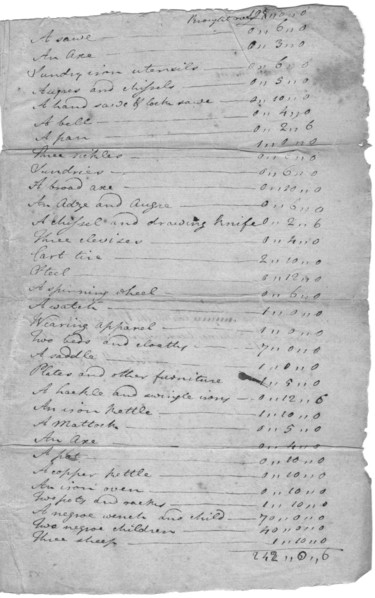 Brought over
A sawe 0 " 6 " 0
An Axe 0 " 3 " 0
Sundry iron utensils 0 " 6 " 0
Auger and chissels 0 " 5 " 0
A hand sawe & lock sawe 0 " 10 " 0
A bell 0 " 4 " 0
A pan 0 " 2 " 6
Three sickles
Sundries 0 " 6 " 0
A broad axe 0 " 10 " 0
An Adze and Augre 0 " 6 " 0
A chissel and drawing knife 0 " 2 " 6
Three clevises 0 " 4 " 0
Cart tire 2 " 10 " 0
Steel 0 " 12 " 0
A spinning wheel 0 " 6 " 0
A watch 1 " 0 " 0
Wearing apparel 1 " 0 " 0
Two beds and cloaths 7 " 0 " 0
A saddle 1 " 0 " 0
Plates and other furniture 1 " 5 " 0
A hackle and swingle irons 0 " 12 " 6
An iron kettle 1 " 10 " 0
A Mattock 0 " 5 " 0
An Axe 0 " 4 " 0
A pot 0 " 10 " 0
A copper kettle 0 " 10 " 0
An iron oven 0 " 10 " 0
Two pots and racks 1 " 10 " 0
A negroe wench and child 70 " 0 " 0
Two negroe children 40 " 0 " 0
Three sheep 1 " 10 " 0
242 " 0 " 6